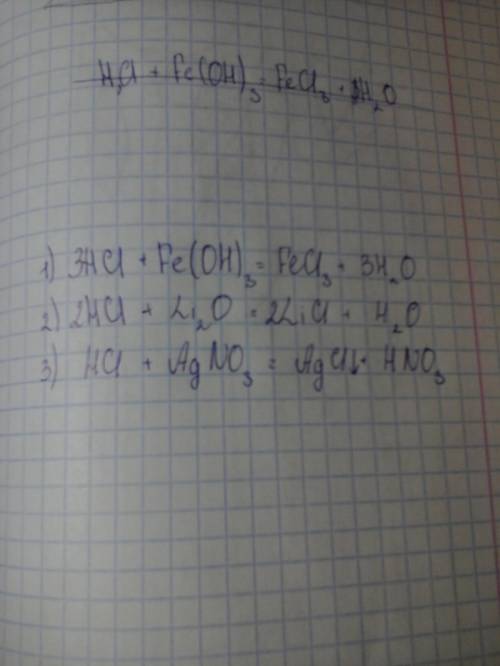 HCl + Fe(OH)₃ = FeCl₃ + 3H₂O
1) 3HCl + Fe(OH)₃ = FeCl₃ + 3H₂O
2) 2HCl + Li₂O = 2LiCl + H₂O
3) HCl + AgNO₃ = AgCl↓ + HNO₃